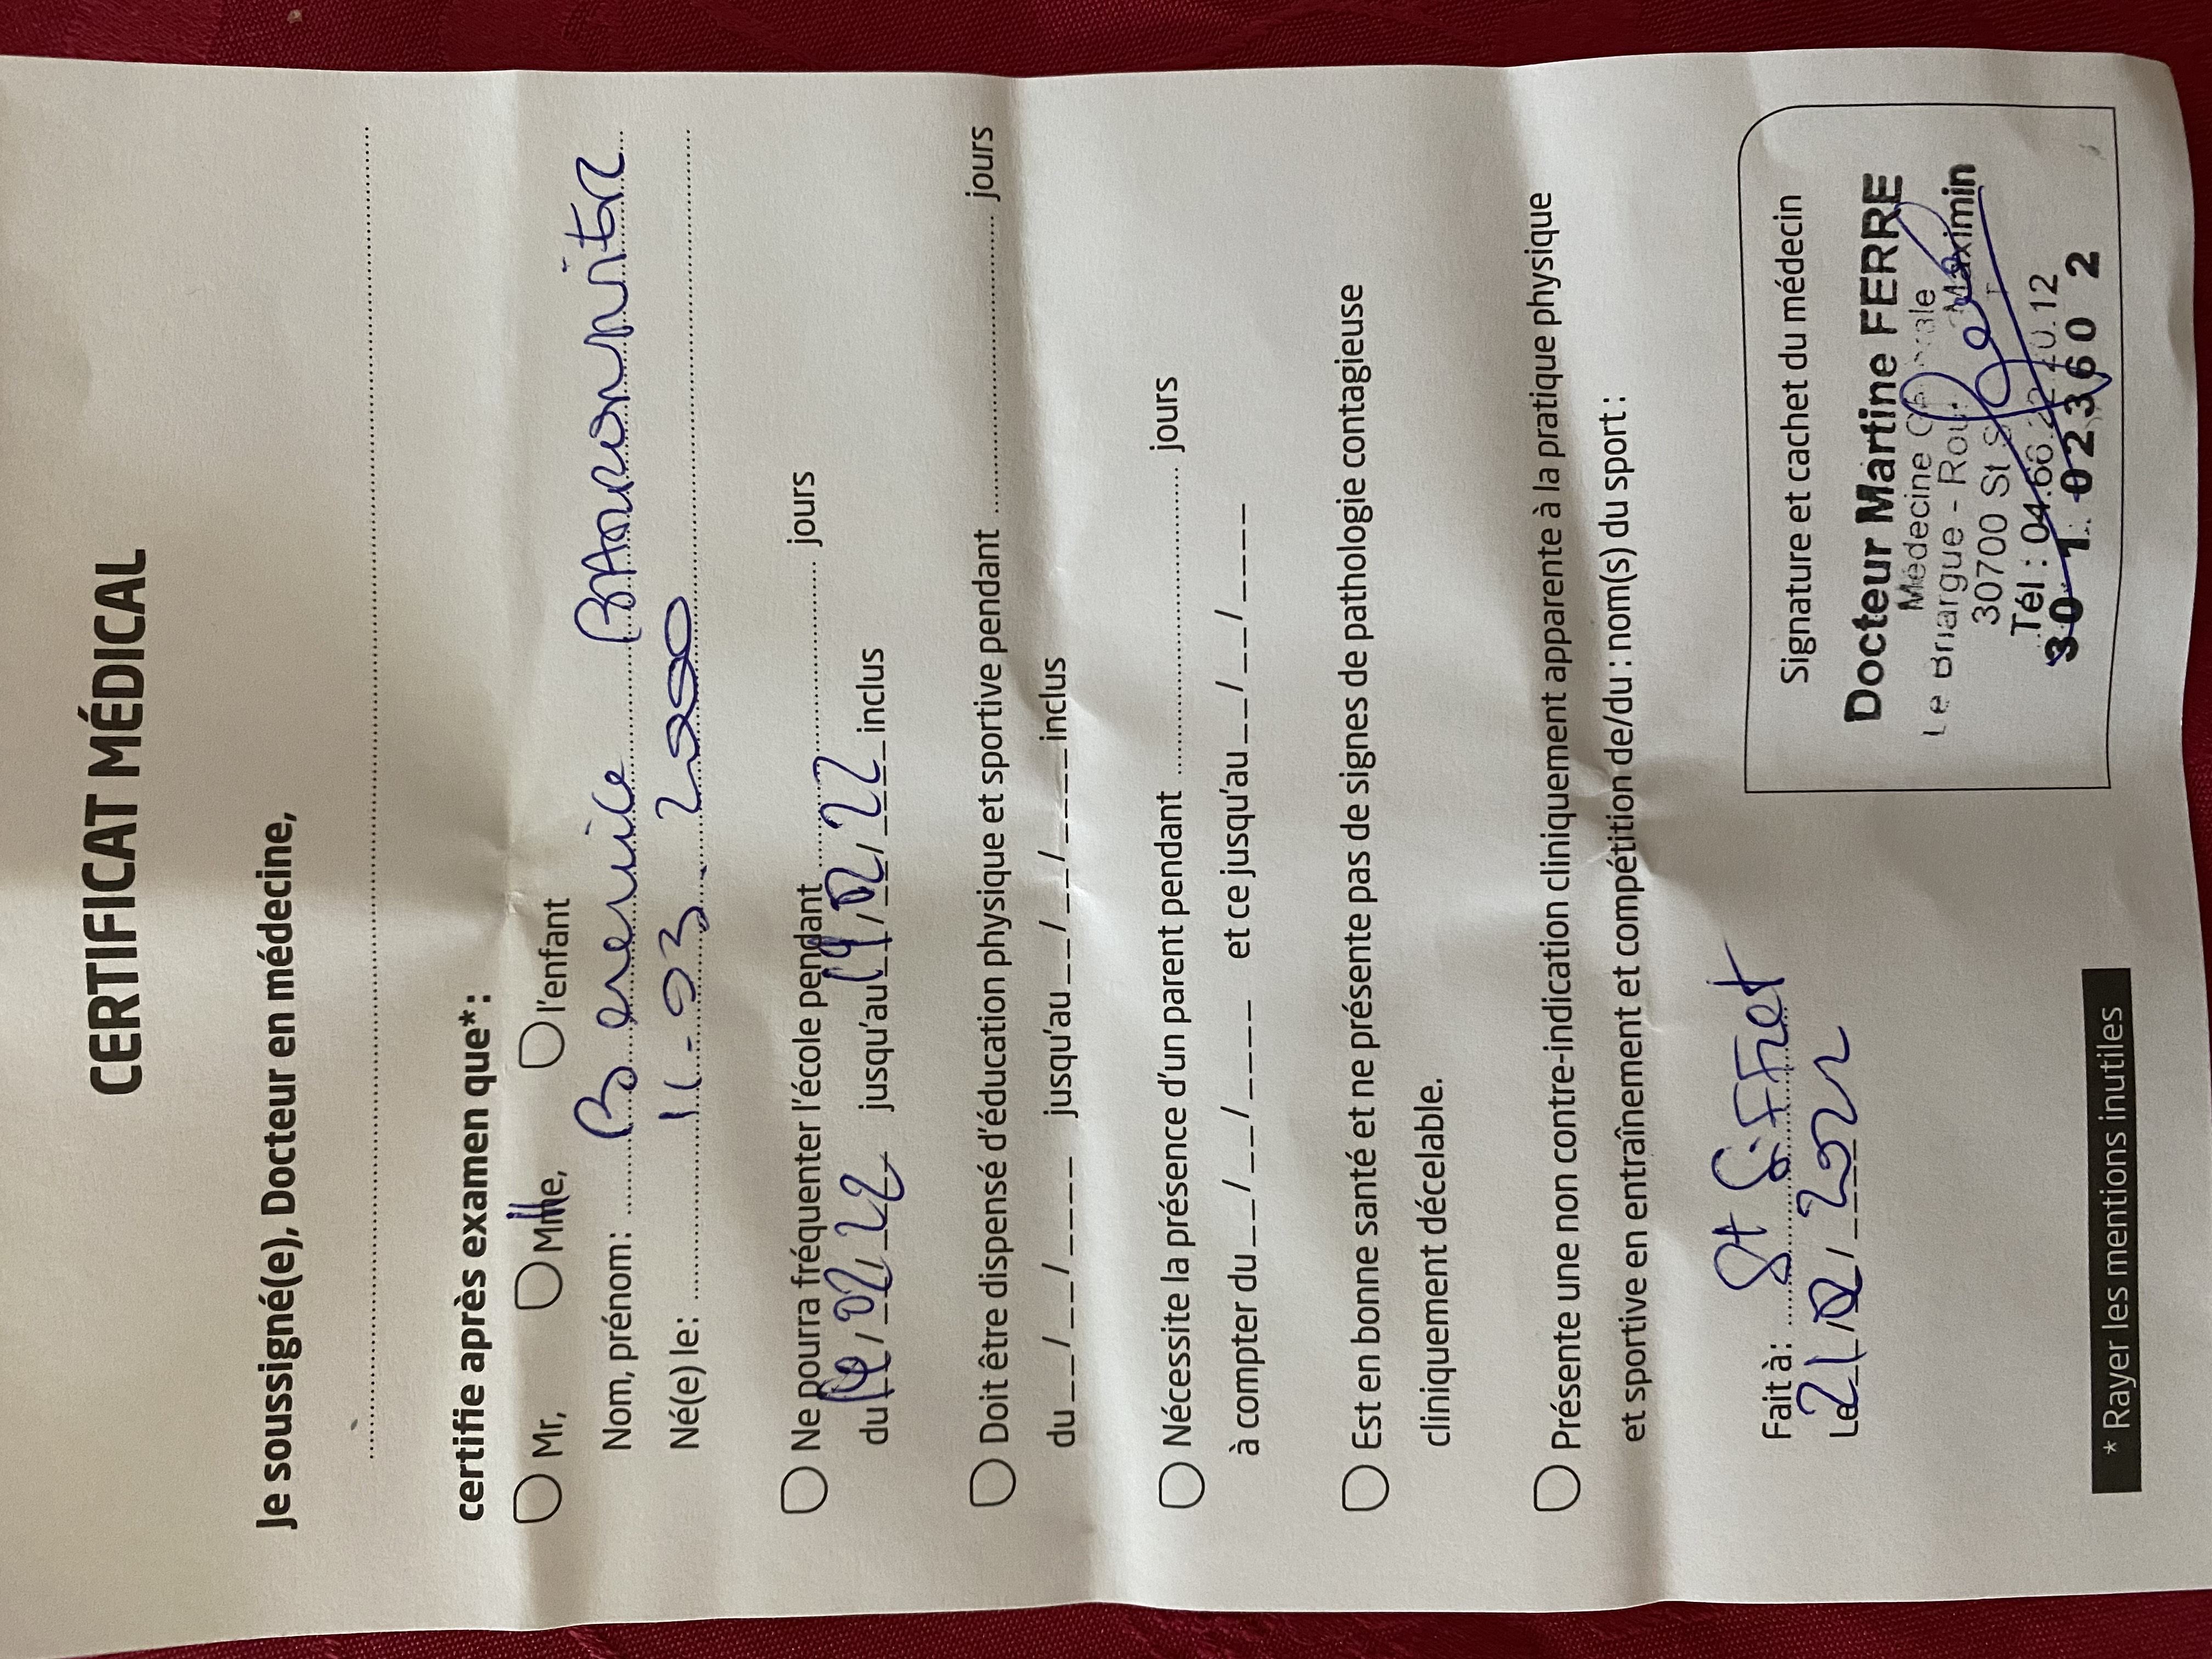 CERTIFICAT MÉDICAL
Je soussigné(e), Docteur en médecine,
certifie après examen que*:
Mr, Mlle, l'enfant
Nom, prénom: Berenice BARRONNIER
Né(e) le: 11-03.2000
Ne pourra fréquenter l'école pendant jours
du /02/22 jusqu'au 19/02/22 inclus
Doit être dispensé d'éducation physique et sportive pendant jours
du __/__/____ jusqu'au __/__/____ inclus
Nécessite la présence d'un parent pendant jours
à compter du __/__/____ et ce jusqu'au __/__/____
Est en bonne santé et ne présente pas de signes de pathologie contagieuse
cliniquement décelable.
Présente une non contre-indication cliniquement apparente à la pratique physique
et sportive en entraînement et compétition de/du : nom(s) du sport :
Fait à: St Siffret
Le 21/02/2022
Signature et cachet du médecin
Docteur Martine FERRE
Médecine Générale
Le Briargue - Maximin
30700 St
Tél : 04.66.22.20.12
30 1 02360 2
* Rayer les mentions inutiles